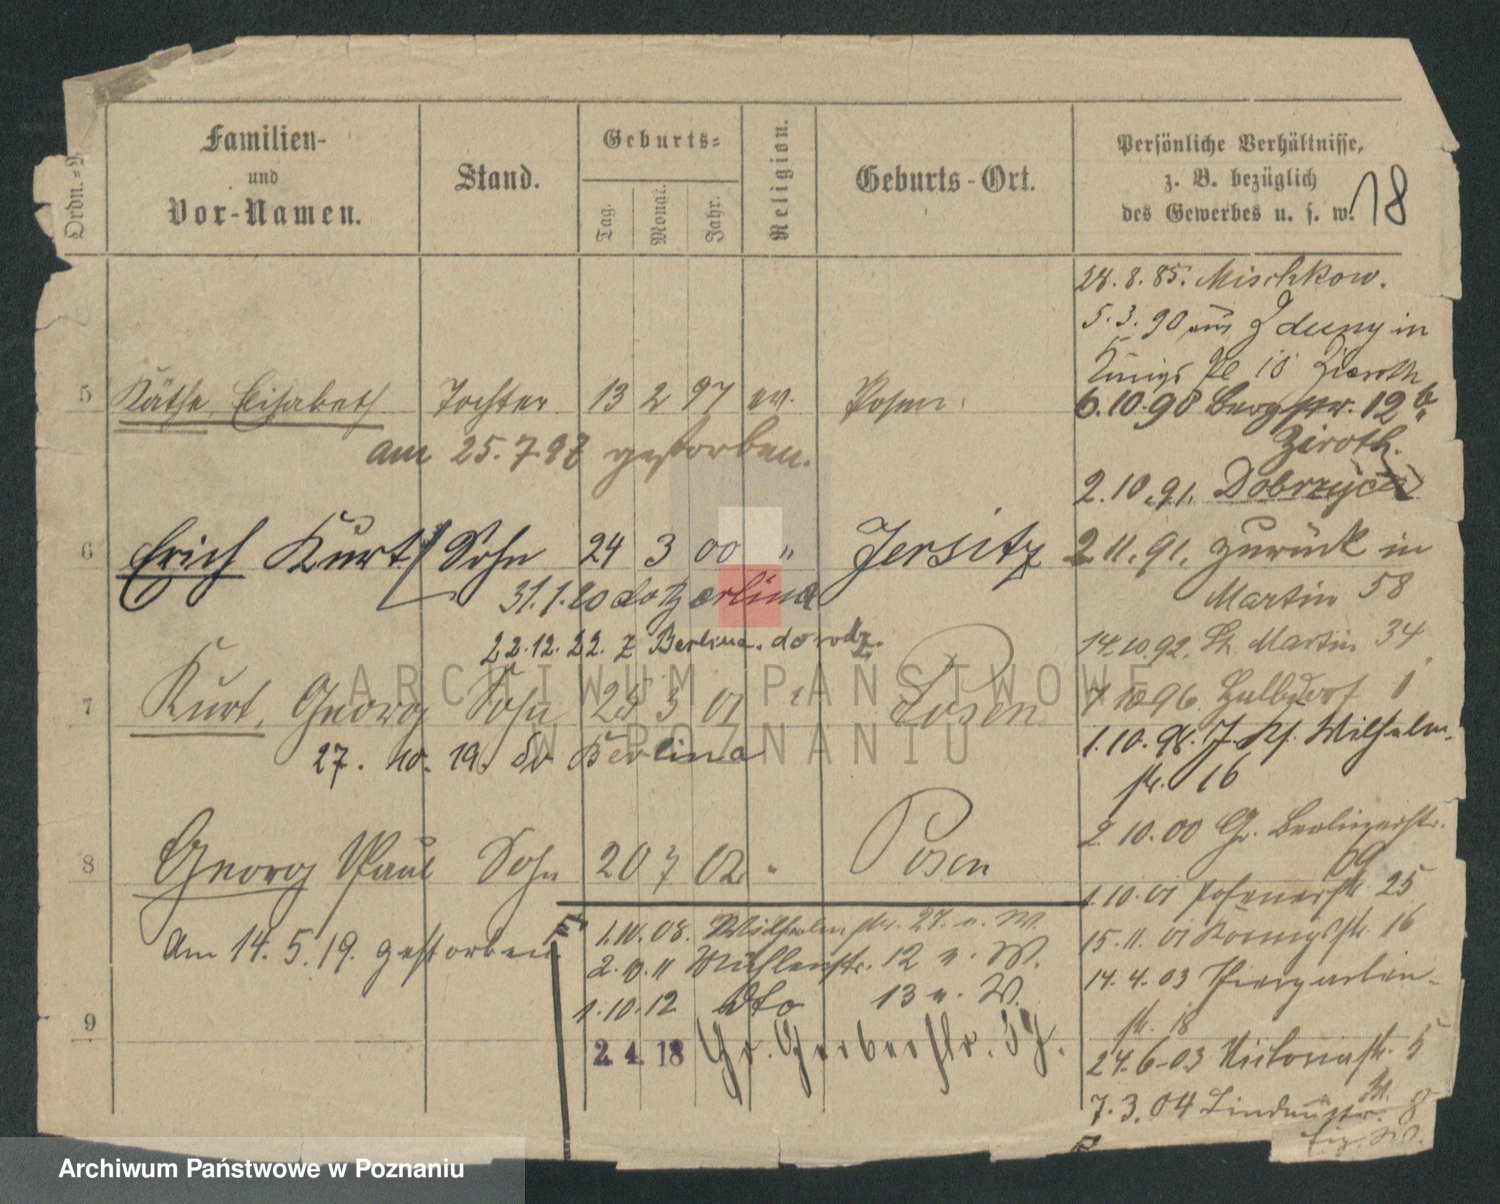 Ordn.=N
Familien-
und
Vor-Namen.
Stand.
Geburts=
Tag.
Monat.
Jahr.
Religion.
Geburts-Ort.
Persönliche Verhältnisse,
z. B. bezüglich
des Gewerbes u. s. w.
18
28. 8. 85. Mischkow.
5. 3. 90 aus Zduny in
Königs Pl 10 Zieroth
6. 10. 90 Bergstr. 12b
Ziroth.
2. 10. 91. Dobrzyca
2. 11. 91. zurück in
Martin 58
14. 10. 92. St. Martin 34
7 10 96.
1. 10. 98. Wilhelm-
str. 16
2. 10. 00 Gr. Berlinerstr.
69
1. 10. 01 Posenerstr 25
15. 11. 01 Koenigsstr. 16
14. 4. 03 Thiergarten-
str. 18
24. 6. 03 Victoriastr. 5
7. 3. 04 Lindenstr. 8
5 Käthe, Elisabeth Tochter 13 2 97 ev. Posen.
am 25. 7. 97 gestorben.
6 Erich Kurt Sohn 24 3 00 " Jersitz
31. 1. 20 do Berlina
22. 12. 22. z Berlina do rodz.
7 Kurt, Georg Sohn 25 3 01 " Posen
27. 10. 19. do Berlina
8 Georg Paul Sohn 20 7 02 " Posen
Am 14. 5. 19. gestorben.
9
1. 10. 08. Wilhelmstr. 27. n. W.
2. 10. 11 Mühlenstr. 12 n. W.
1. 10. 12 dto 13 n. W.
2. 4. 18 Gr. Gerberstr. 37.
ARCHIWUM PAŃSTWOWE
W POZNANIU
Archiwum Państwowe w Poznaniu